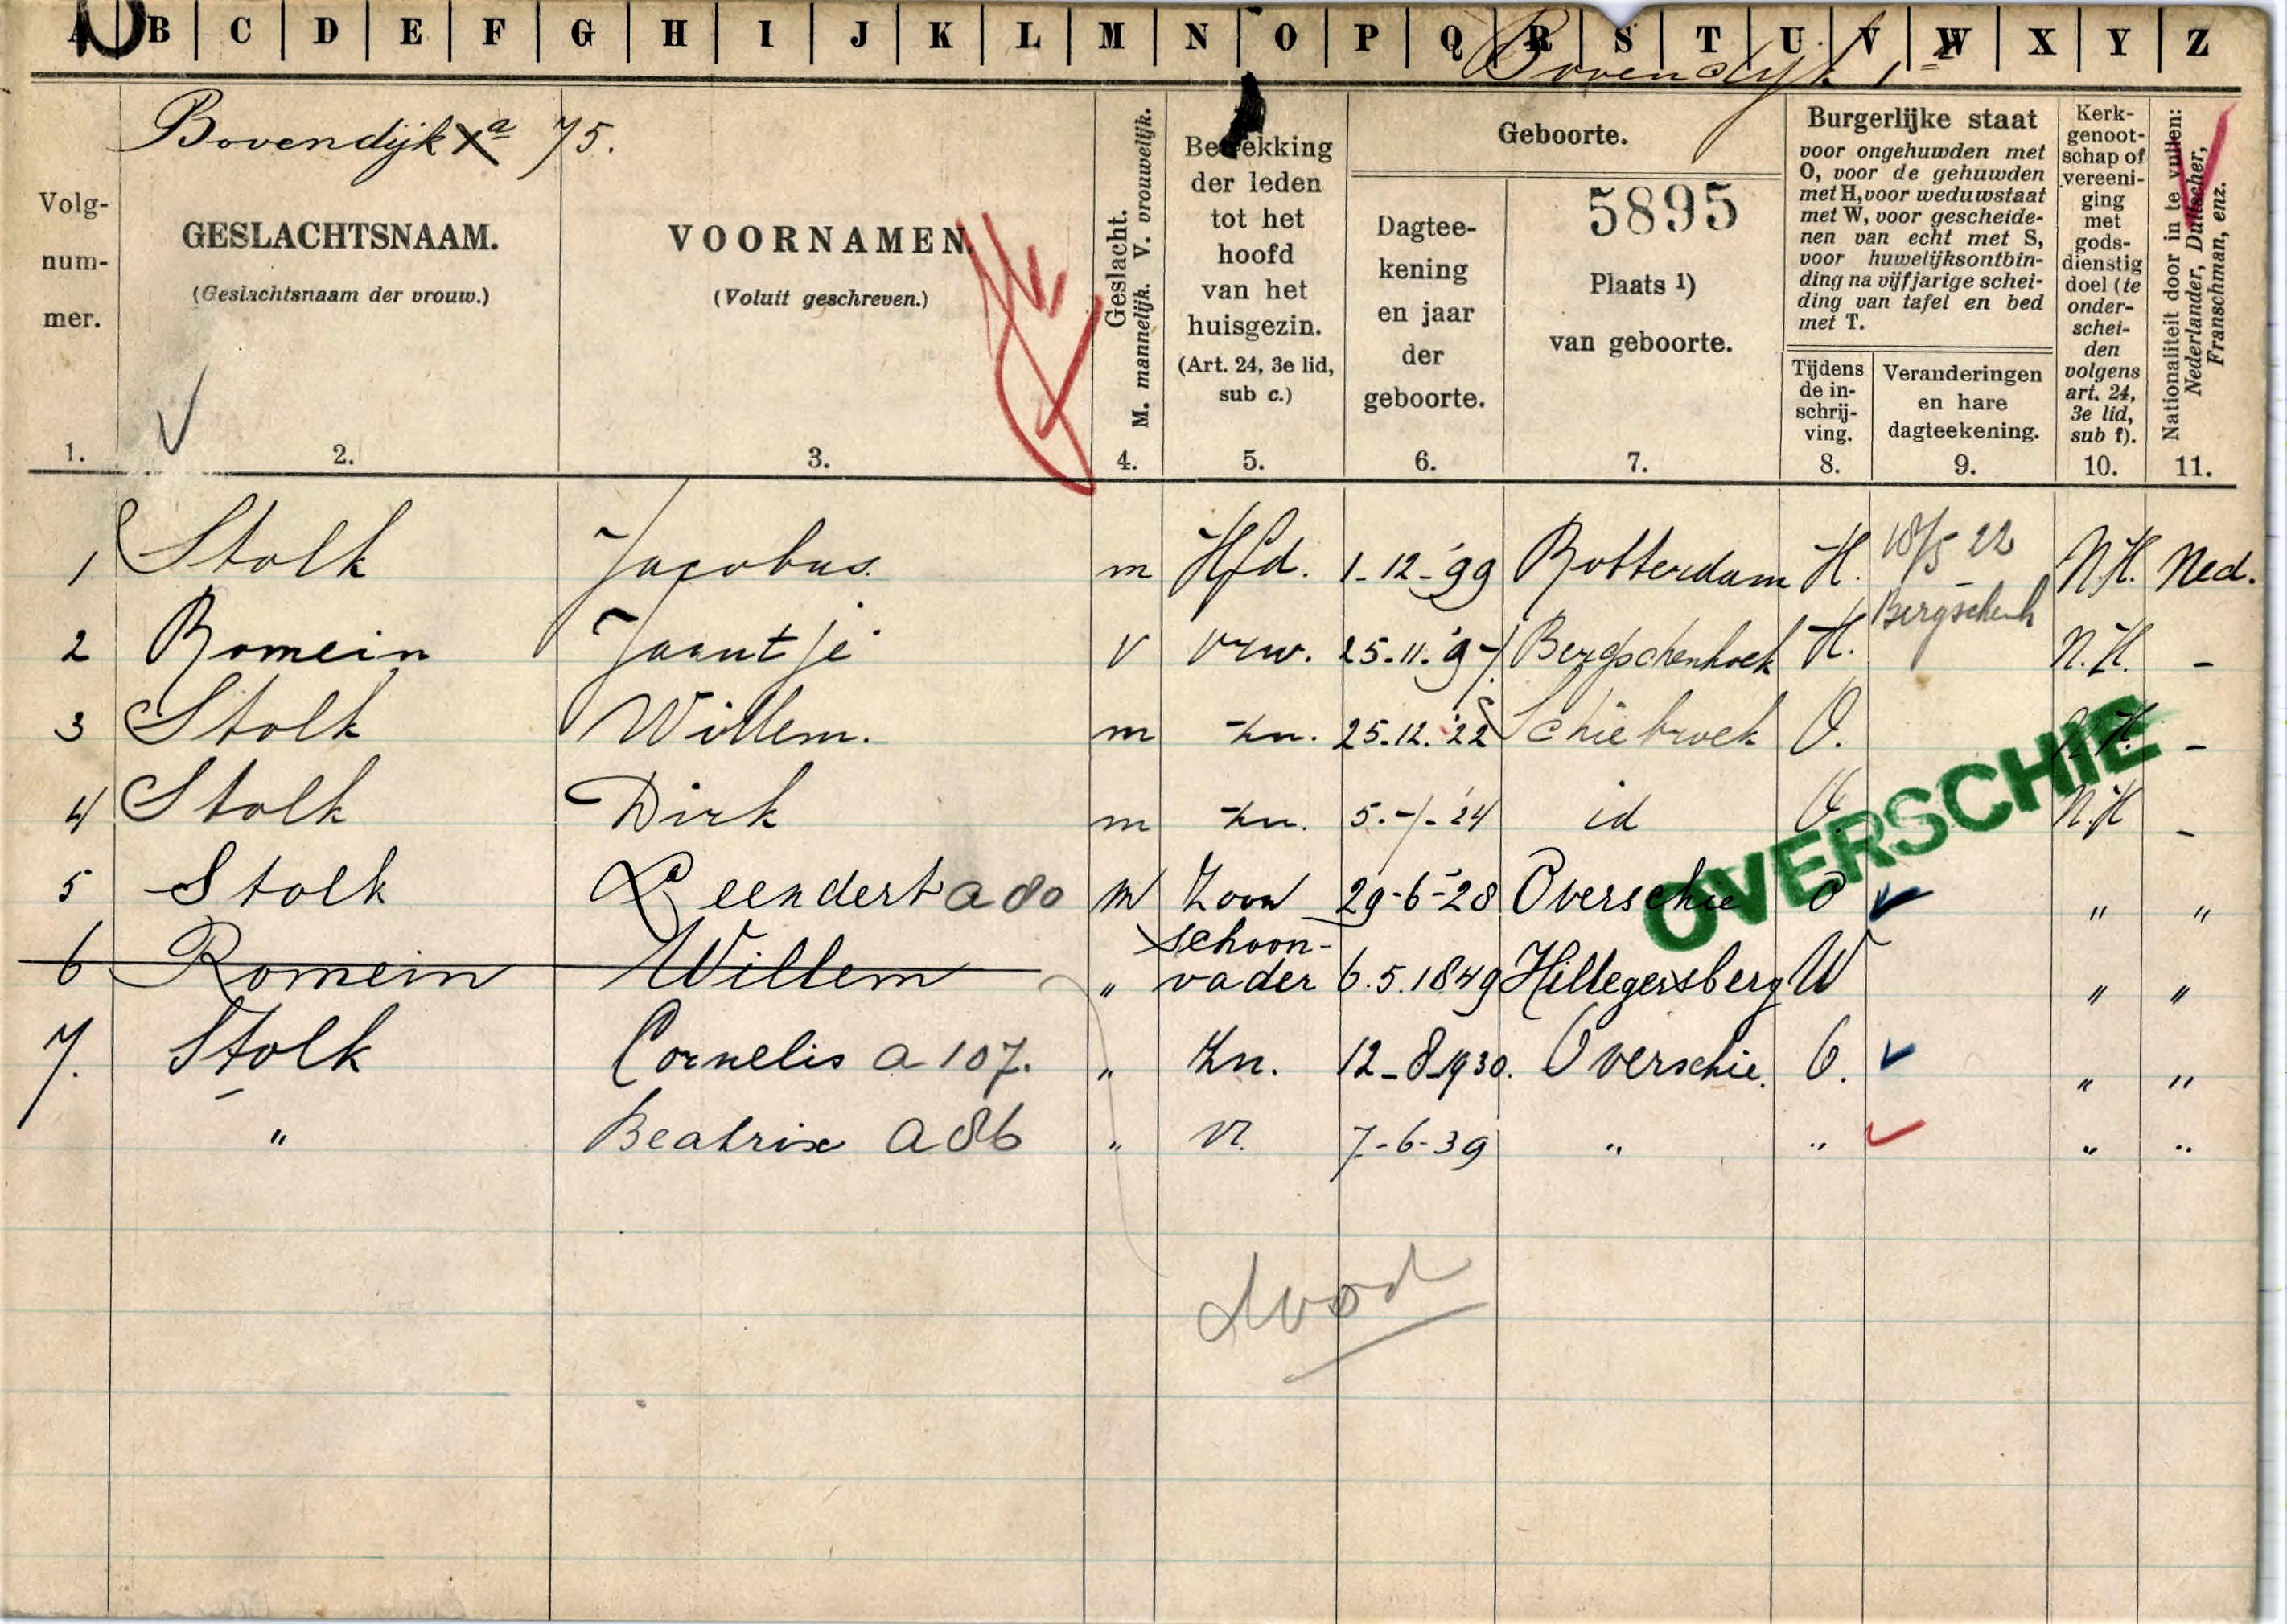 A B C D E F G H I J K L M N O P Q R S T U V W X Y Z
Bovendijk 1a
Bovendijk Xa 75.
Volg-
num-
mer.
1.
GESLACHTSNAAM.
(Geslachtsnaam der vrouw.)
2.
VOORNAMEN.
(Voluit geschreven.)
3.
Geslacht.
M. mannelijk. V. vrouwelijk.
4.
Betrekking
der leden
tot het
hoofd
van het
huisgezin.
(Art. 24, 3e lid,
sub c.)
5.
Geboorte.
Dagtee-
kening
en jaar
der
geboorte.
6.
5895
Plaats 1)
van geboorte.
7.
Burgerlijke staat
voor ongehuwden met
O, voor de gehuwden
met H, voor weduwstaat
met W, voor gescheide-
nen van echt met S,
voor huwelijksontbin-
ding na vijfjarige schei-
ding van tafel en bed
met T.
Tijdens
de in-
schrij-
ving.
8.
Veranderingen
en hare
dagteekening.
9.
Kerk-
genoot-
schap of
vereeni-
ging
met
gods-
dienstig
doel (te
onder-
schei-
den
volgens
art. 24,
3e lid,
sub f).
10.
Nationaliteit door in te vullen:
Nederlander, Duitscher,
Franschman, enz.
11.
1 Stolk Jacobus. m Hfd. 1-12-'99 Rotterdam H. 18/5 22 N.H. Ned.
Bergschenh
2 Romein Jaantje v vrw. 25.11.'97. Bergschenhoek H. N.H. –
3 Stolk Willem. m zn. 25.12.'22 Schiebroek O. N.H. –
4 Stolk Dirk m zn. 5.-7.-'24 id O. N.H –
OVERSCHIE
5 Stolk Leendert a 80 m Zoon 29-6-'28 Overschie O " "
6 Romein Willem " schoon-
vader 6.5.1849 Hillegersberg W " "
7. Stolk Cornelis a 107. " Zn. 12-8-1930. Overschie. O. " "
" Beatrix a 86 " v. 7-6-39 " " " "
dood